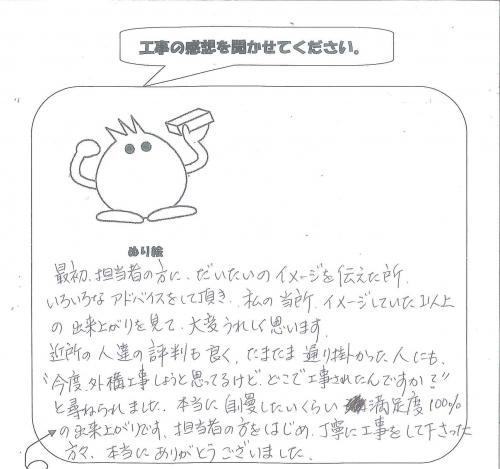 工事の感想を聞かせてください。
ぬり絵
最初、担当者の方に、だいたいのイメージを伝えた所、
いろいろなアドバイスをして頂き、私の当所、イメージしていた以上
の出来上がりを見て、大変うれしく思います。
近所の人達の評判も良く、たまたま通り掛かった人にも、
"今度、外構工事しようと思ってるけど、どこで工事されたんですか?"
と尋ねられました。本当に自慢したいくらい 満足度100%
の出来上がりです。担当者の方をはじめ、丁寧に工事をして下さった
方々、本当にありがとうございました。